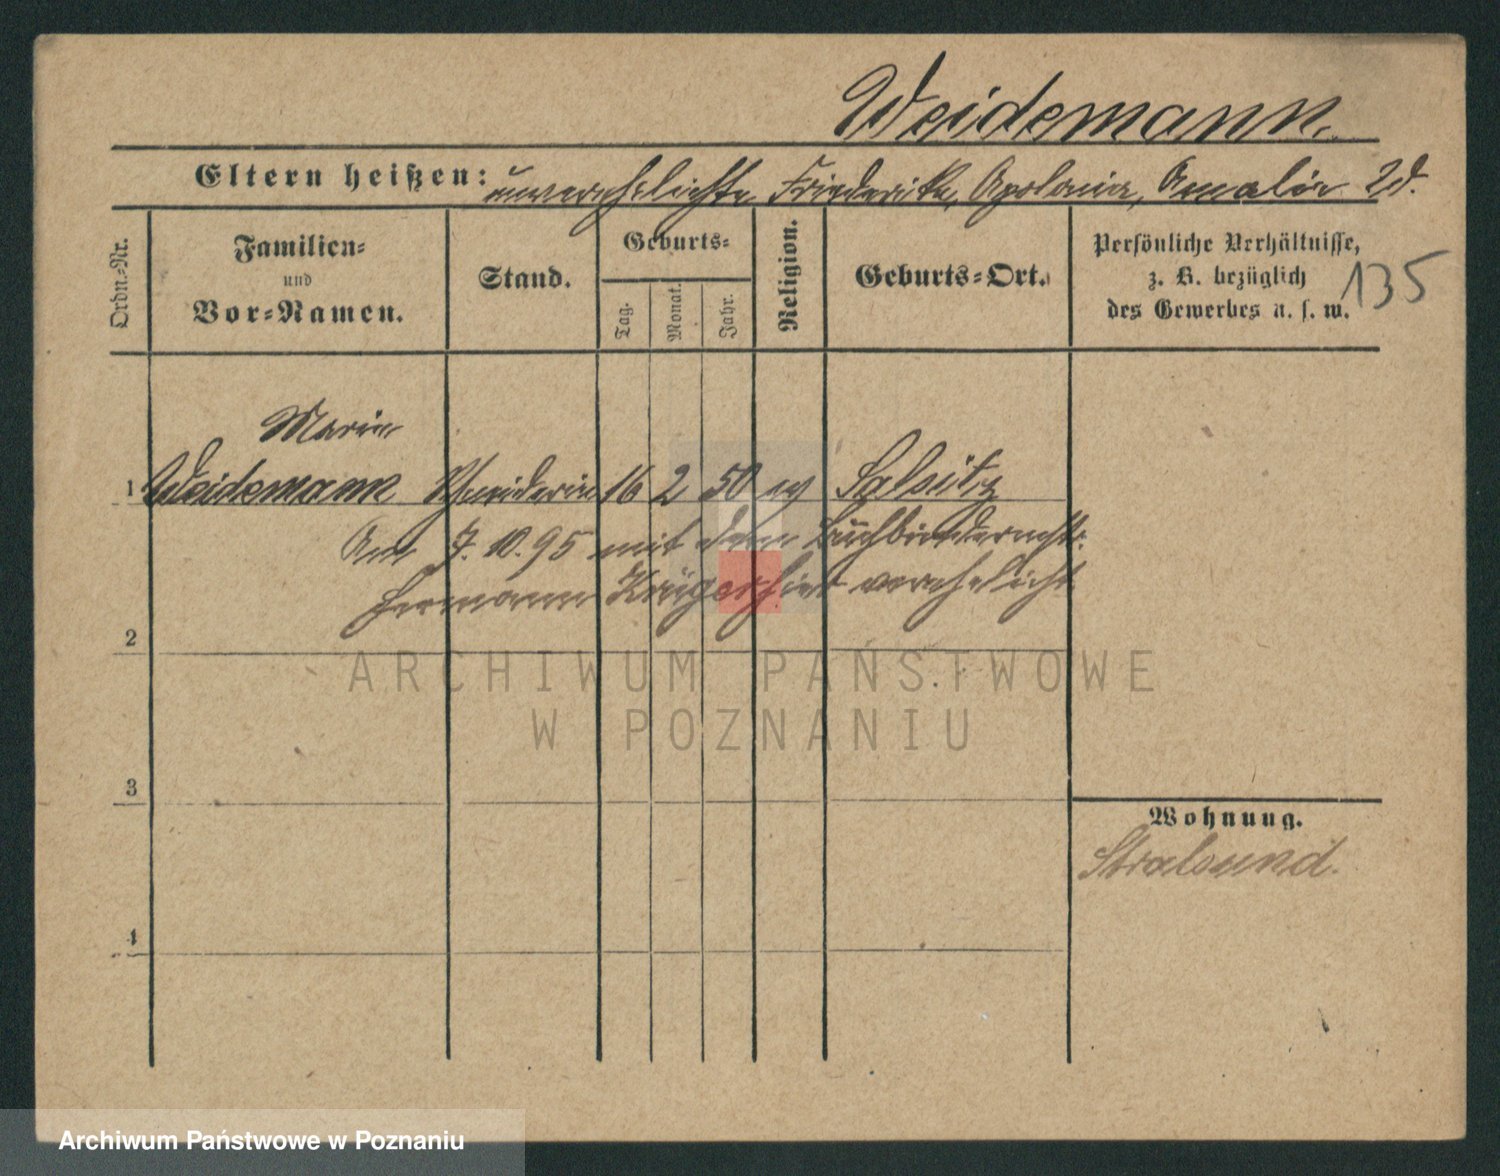 Weidemann.
Eltern heißen: unverehelichte Friederike, Apolonia, Amalie Wd.
Ordn.-Nr.
Familien-
und
Vor-Namen.
Stand.
Geburts-
Tag.
Monat.
Jahr.
Religion.
Geburts-Ort.
Persönliche Verhältnisse,
z. B. bezüglich
des Gewerbes u. s. w.
135
Marie
1 Weidemann Schneiderin 16 2 50 ev
Am 7. 10. 95 mit dem
Hermann Krüger hier verehelicht
2
ARCHIWUM PAŃSTWOWE
W POZNANIU
3
Wohnung.
Stralsund.
4
Archiwum Państwowe w Poznaniu